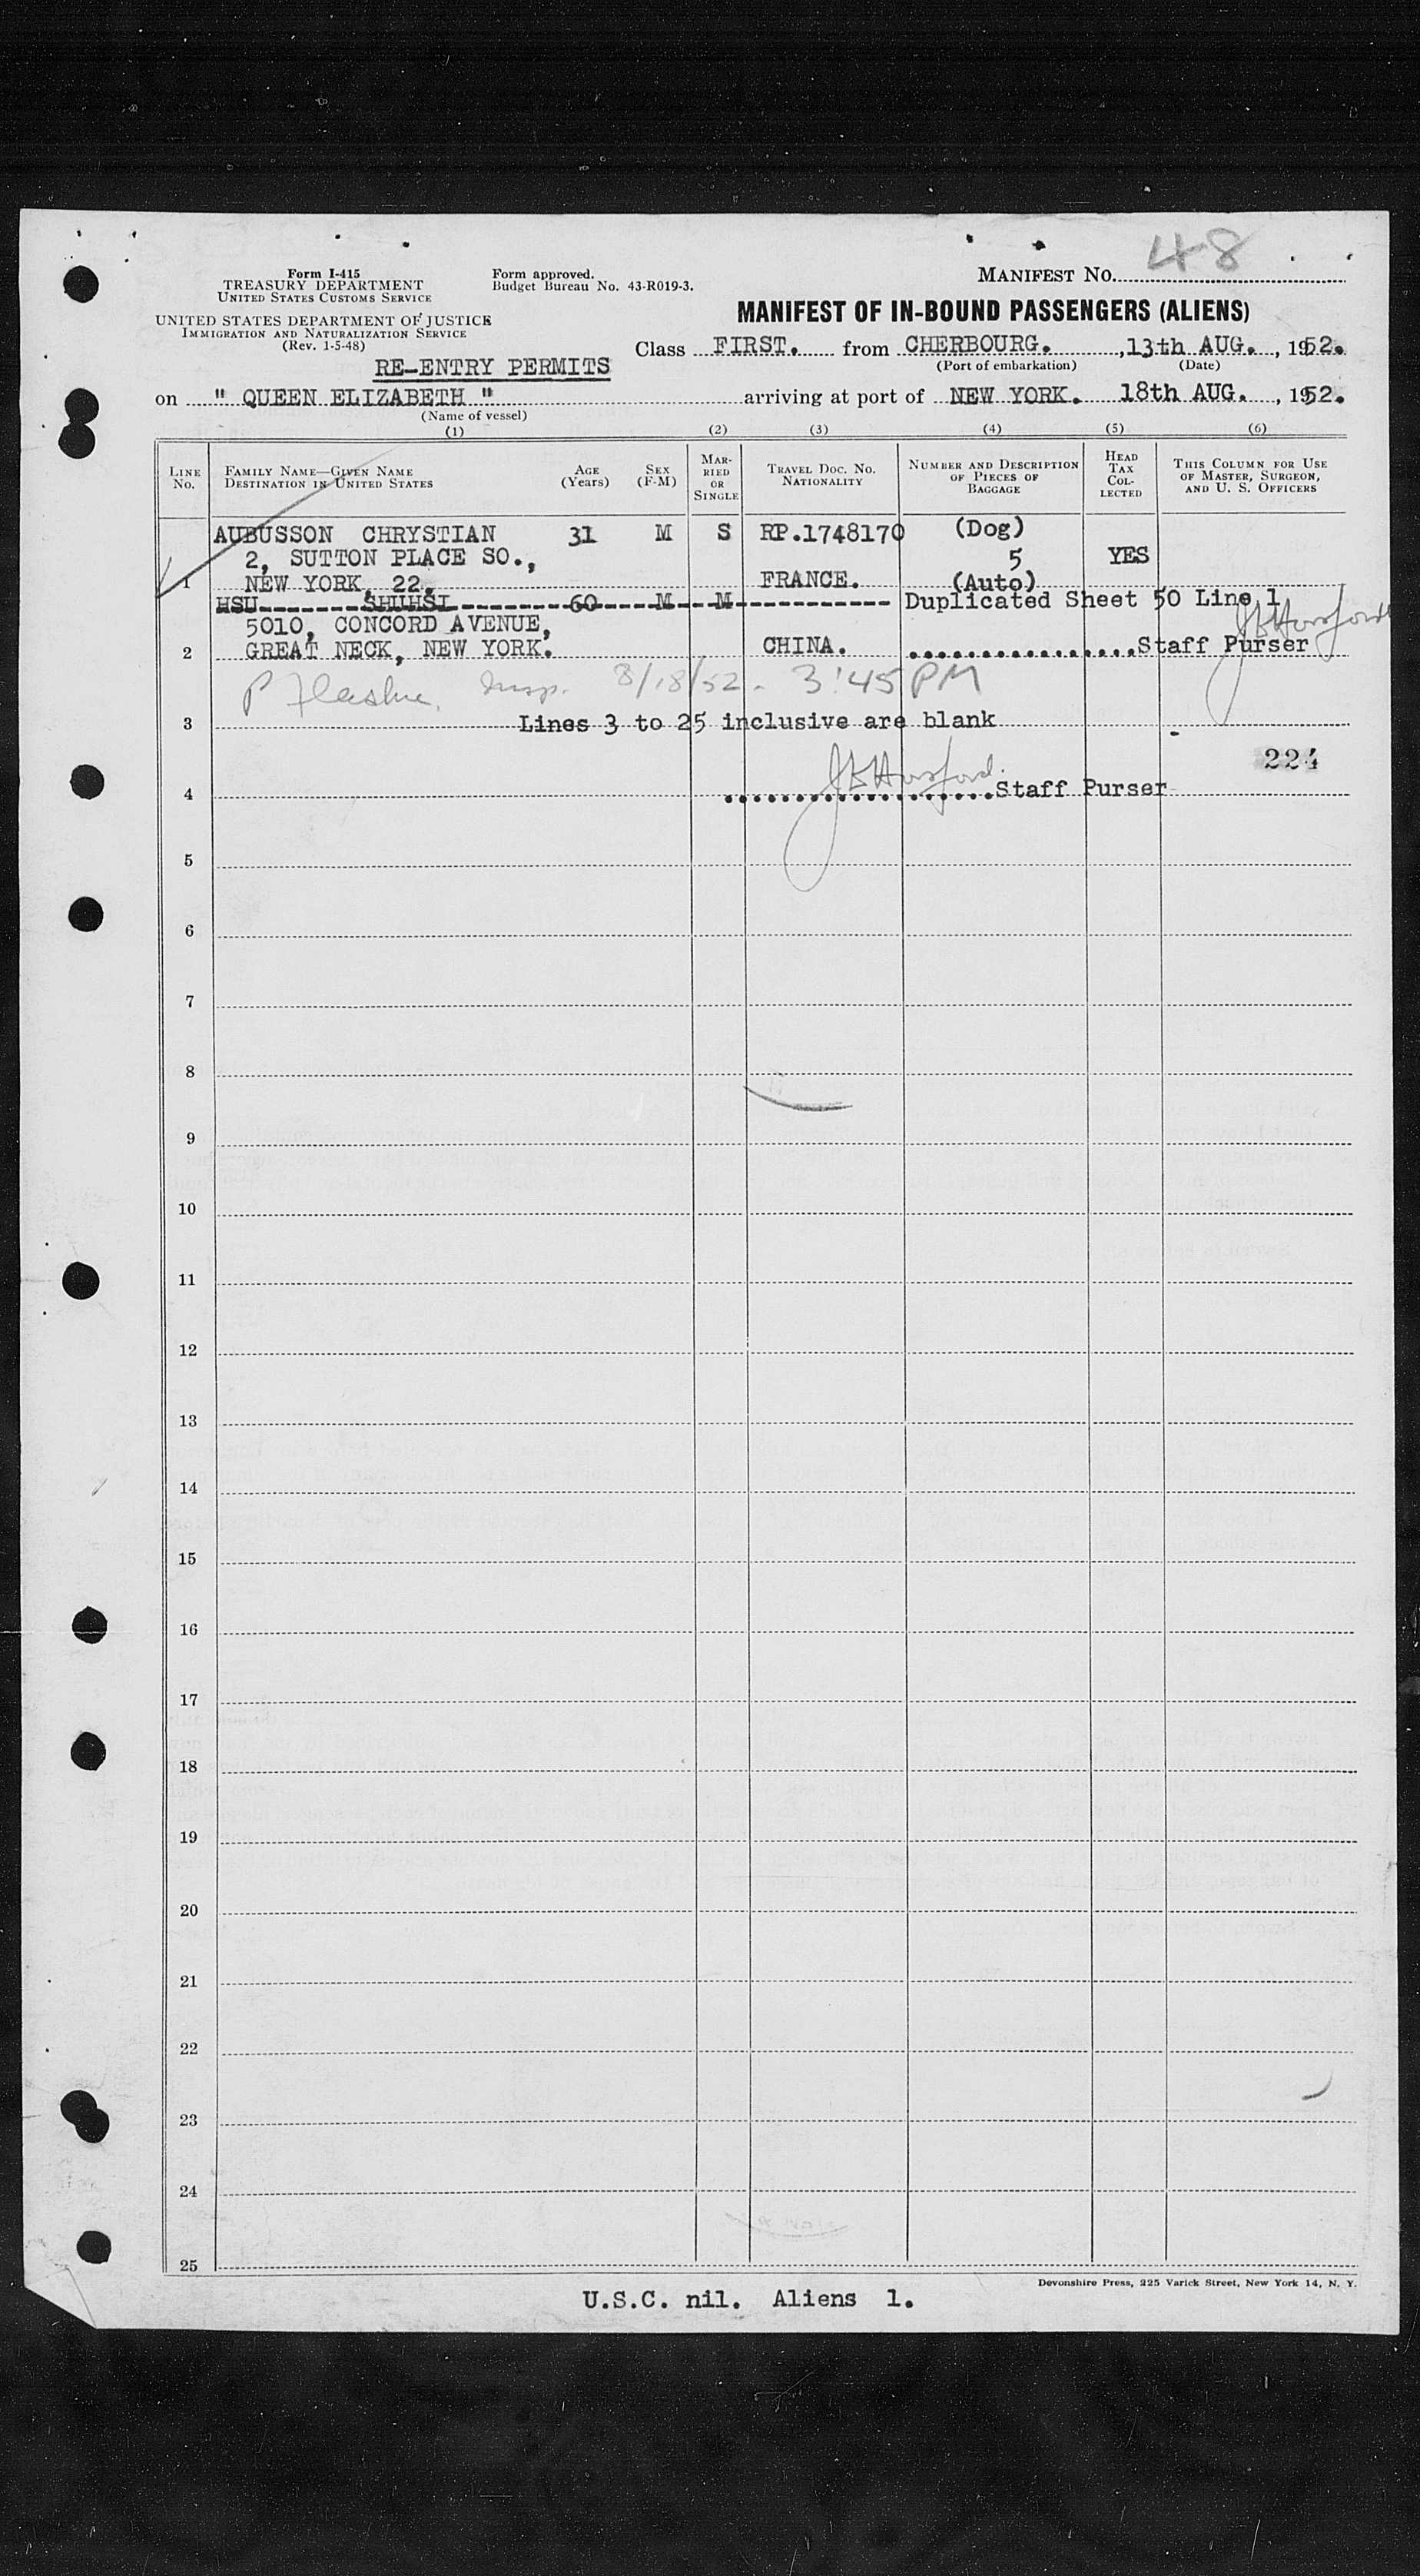 48
Form I-415
TREASURY DEPARTMENT
UNITED STATES CUSTOMS SERVICE
Form approved.
Budget Bureau No. 43-R019-3.
MANIFEST NO.
UNITED STATES DEPARTMENT OF JUSTICE
IMMIGRATION AND NATURALIZATION SERVICE
(Rev. 1-5-48)
MANIFEST OF IN-BOUND PASSENGERS (ALIENS)
RE-ENTRY PERMITS
Class FIRST. from CHERBOURG. , 13th AUG. , 1952.
(Port of embarkation) (Date)
on " QUEEN ELIZABETH " arriving at port of NEW YORK. 18th AUG. , 1952.
(Name of vessel)
(1) (2) (3) (4) (5) (6)
LINE NO.
FAMILY NAME—GIVEN NAME
DESTINATION IN UNITED STATES
AGE (Years)
SEX (F-M)
MARRIED OR SINGLE
TRAVEL DOC. NO. NATIONALITY
NUMBER AND DESCRIPTION OF PIECES OF BAGGAGE
HEAD TAX COLLECTED
THIS COLUMN FOR USE OF MASTER, SURGEON, AND U. S. OFFICERS
AUBUSSON CHRYSTIAN 31 M S RP.1748170 (Dog)
2, SUTTON PLACE SO., 5 YES
1 NEW YORK, 22. FRANCE. (Auto)
HSU SHUHSI 60 M M Duplicated Sheet 50 Line 1
5010, CONCORD AVENUE,
2 GREAT NECK, NEW YORK. CHINA. Staff Purser
Insp. 8/18/52. 3:45 PM
3 Lines 3 to 25 inclusive are blank
224
4 Staff Purser
5
6
7
8
9
10
11
12
13
14
15
16
17
18
19
20
21
22
23
24
25
Devonshire Press, 225 Varick Street, New York 14, N. Y.
U.S.C. nil. Aliens 1.